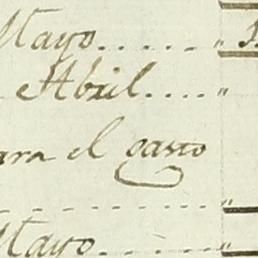 Mayo......"
Abril...."
para el gasto
Mayo.....